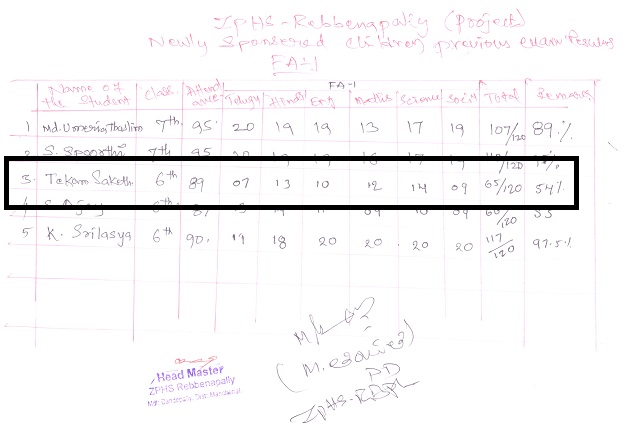 ZPHS-Rebbenapally (Project)
Newly Sponsered children previous exam Results
FA-1
FA-1
Name of the Student Class Attendance Telugu Hindi Eng Maths Science Social Total Remarks
1 Md. Thaslim 7th 95. 20 19 19 13 17 19 107/120 89.%
2 S. Spoorthi 7th 95
3. Tekam Saketh 6th 89 07 13 10 12 14 09 65/120 54%
4 S. Ajay 6th
5 K. Srilasya 6th 90. 19 18 20 20 20 20 117/120 97.5%
Head Master
ZPHS Rebbenapally
PD
ZPHS-RBPL